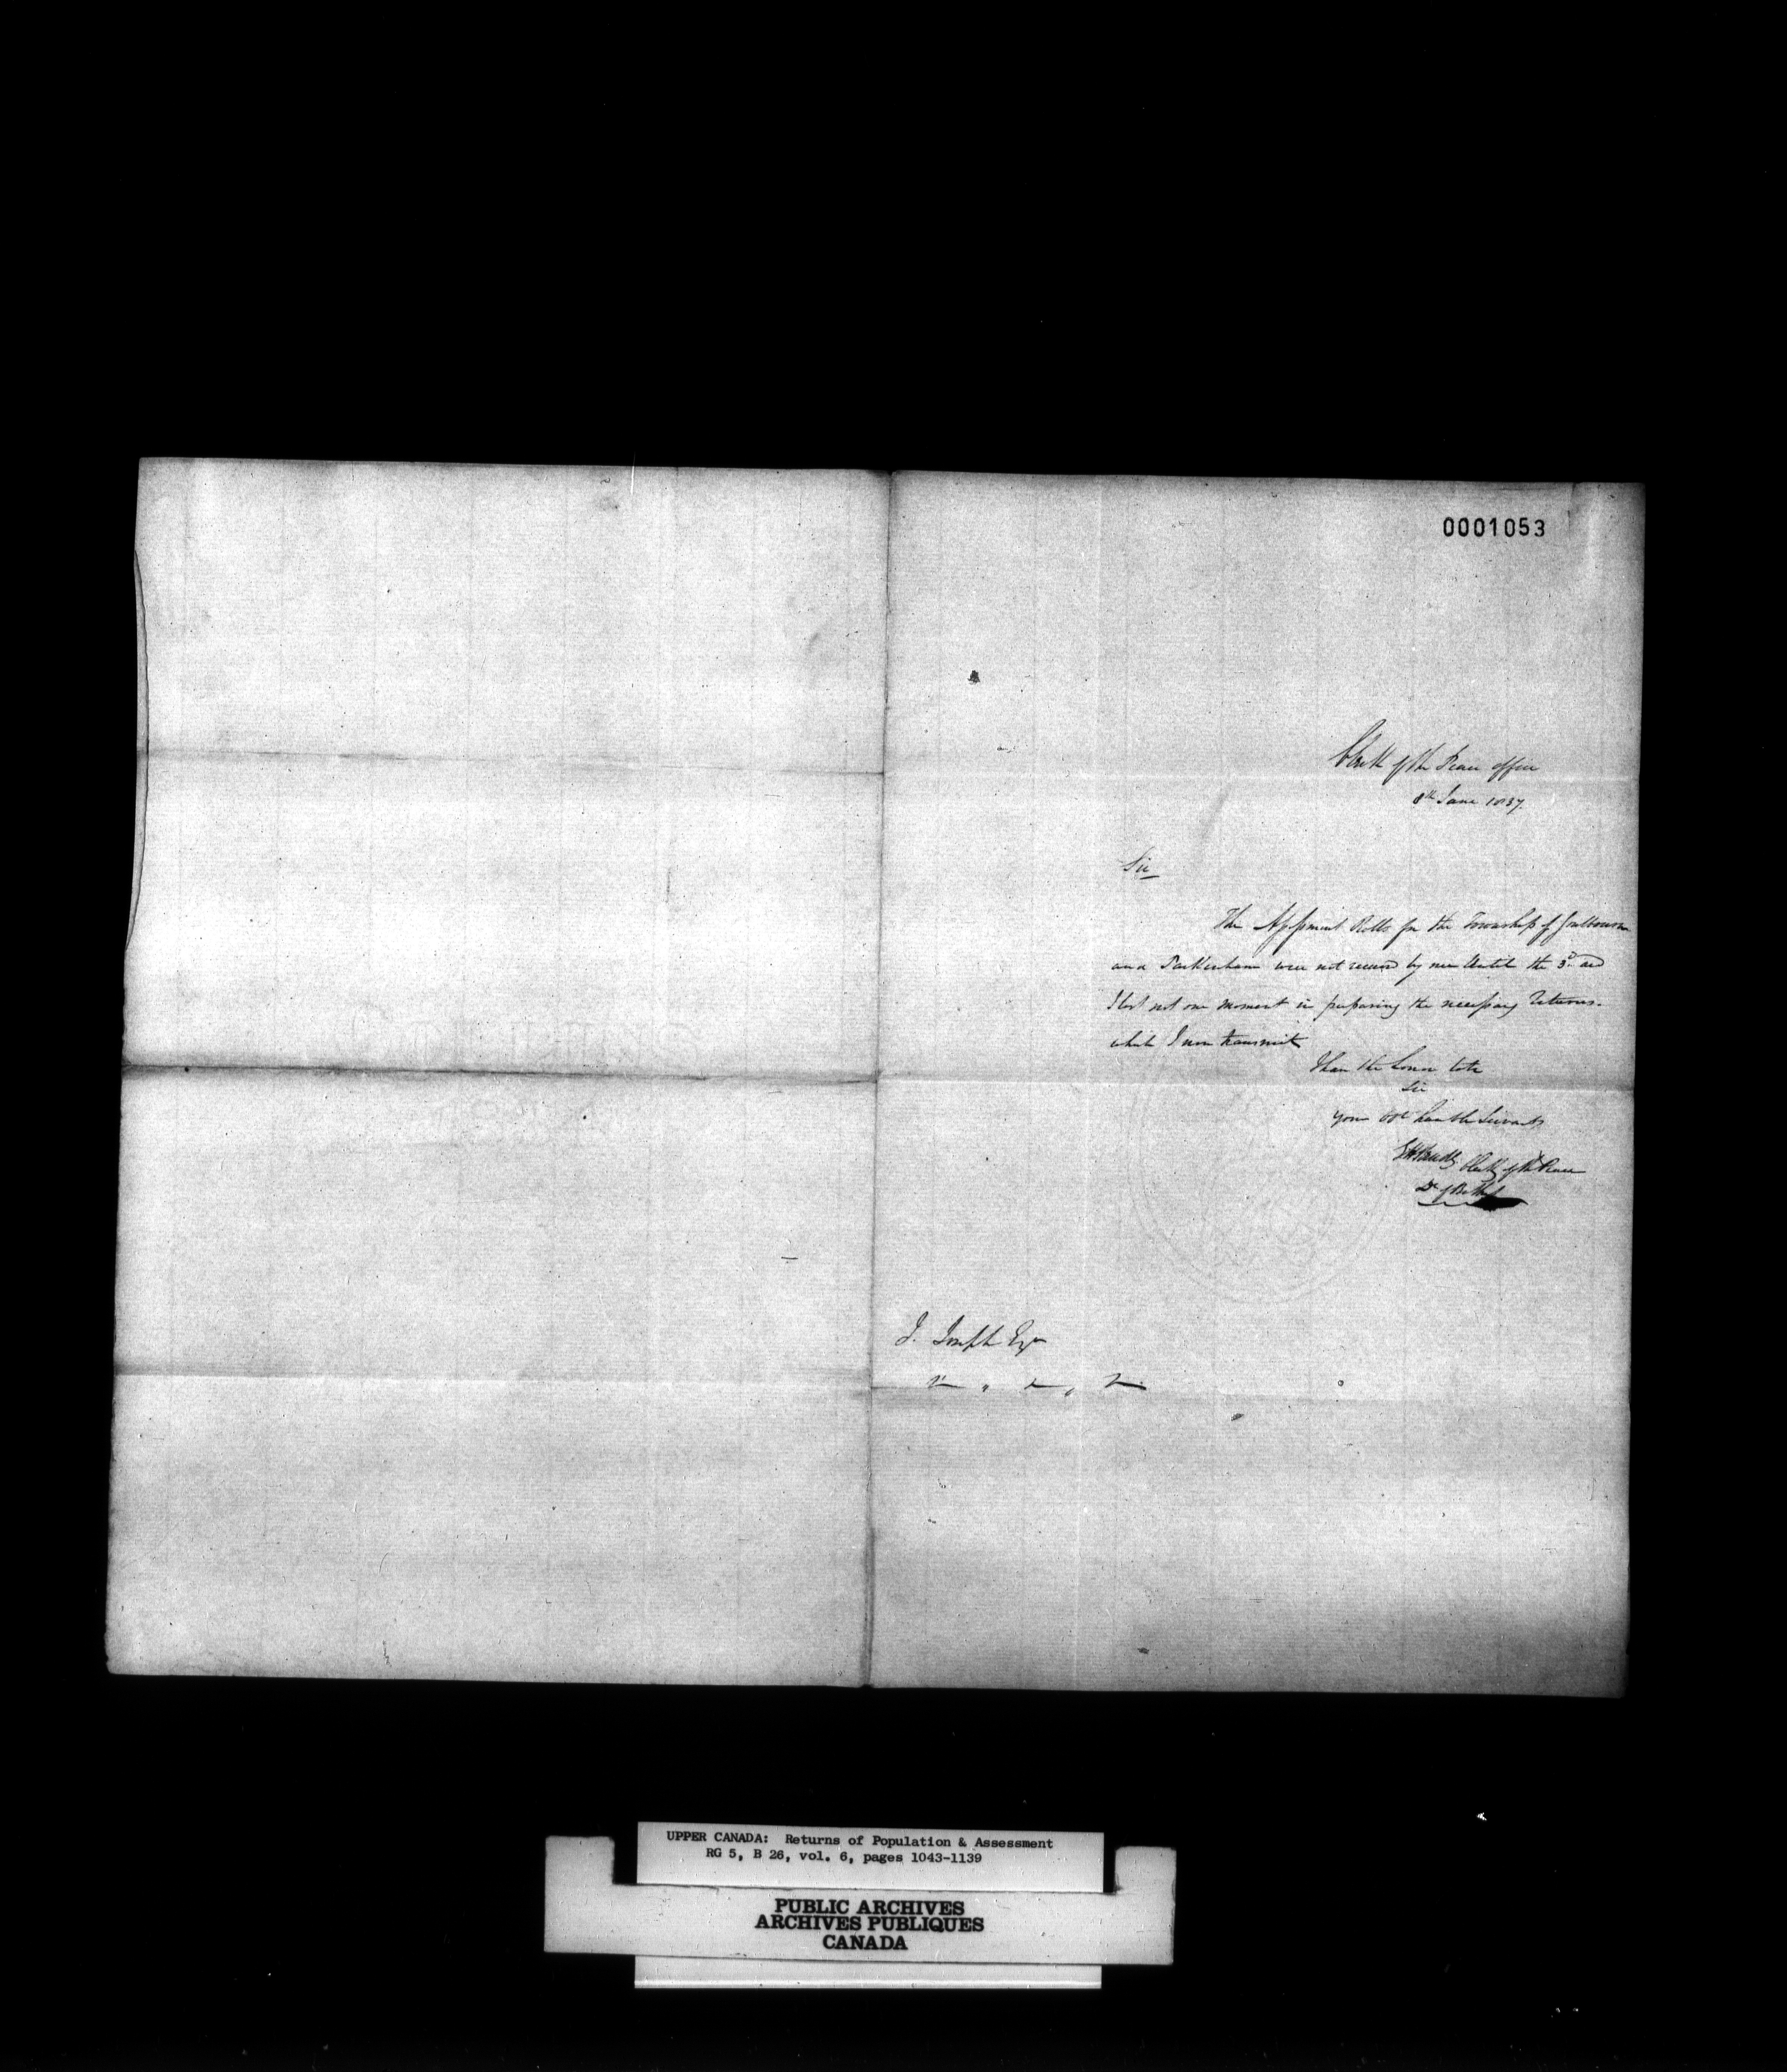 0001053
Clerk of the Peace office
8th June 1837.
Sir
The Assessment Rolls for the Township of Goulbourn
and Packenham were not received by me Until the 3d. and
I lost not one moment in preparing the necessary Returns.
which I now transmit
I have the honor to be
Sir
Your obt humble Servant
Clerk of the Peace
Dt of Bathst
J. Joseph Esqr
UPPER CANADA: Returns of Population & Assessment
RG 5, B 26, vol. 6, pages 1043-1139
PUBLIC ARCHIVES
ARCHIVES PUBLIQUES
CANADA